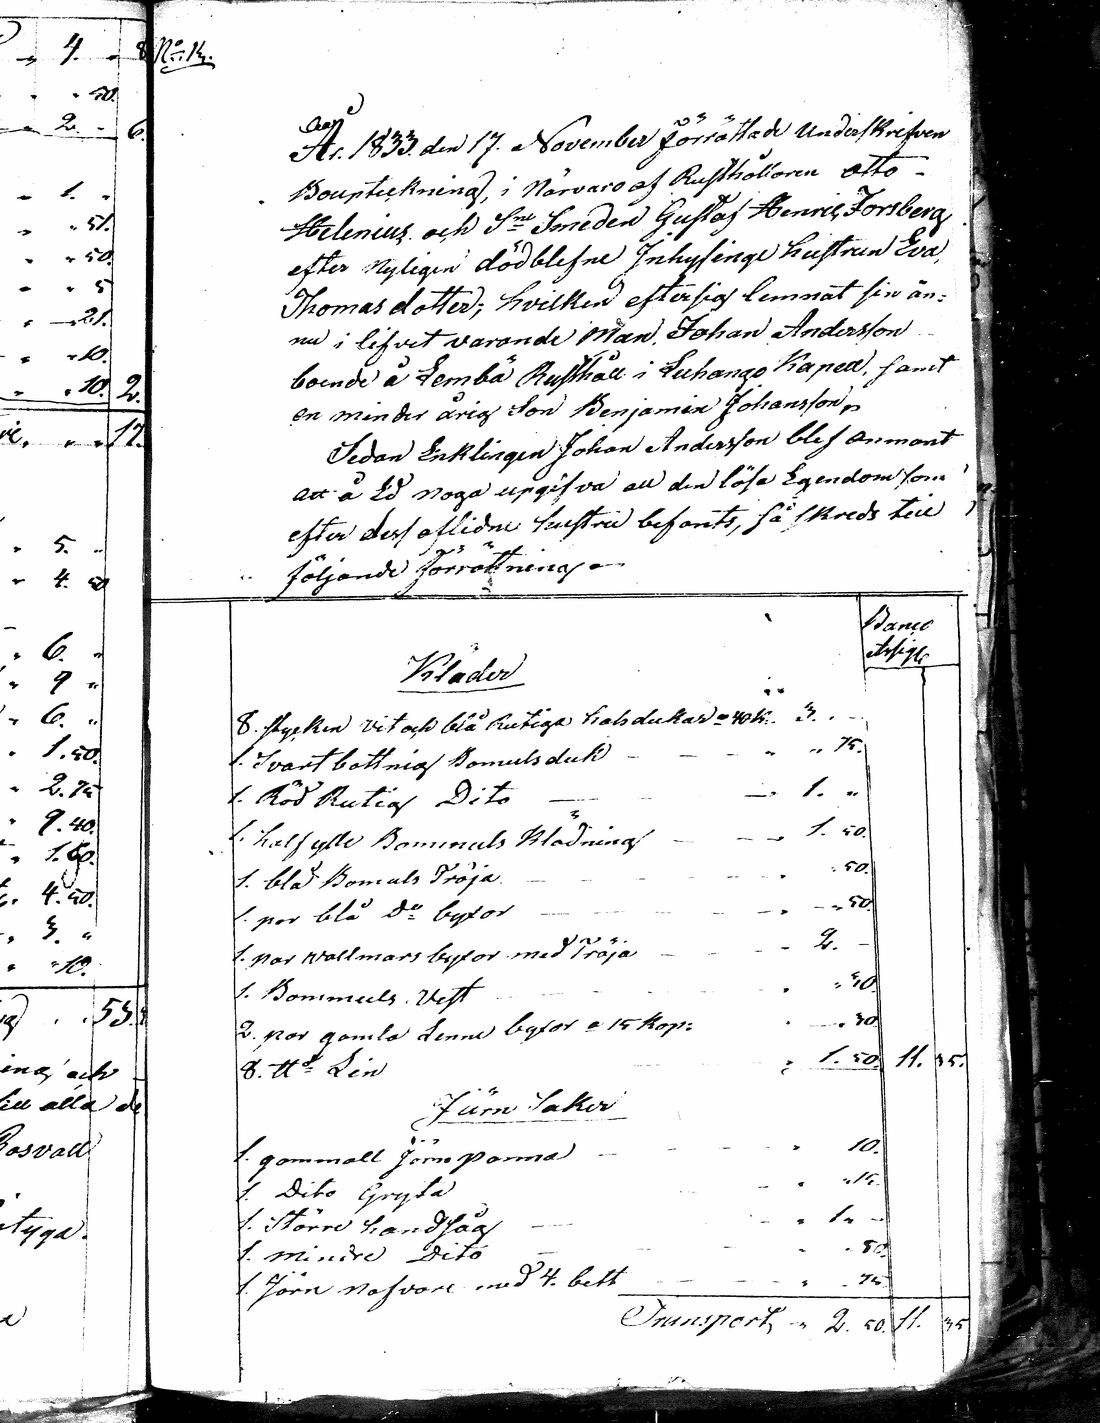 4. " 8
" " 50.
" 2. " 6.
" 1. "
" " 51.
" " 50.
" " 5
" " 21.
" " 10.
" " 10. 2.
" " " 17.
" 5. "
" 4. 50
" 6. "
" 9 "
" 6. "
" 1.50.
" 2.75
" 9.40.
" 1.60.
" 4.50.
" 3. "
" " 10.
53.
och
till alla de
Rosvall
styga.
No 14.
År. 1833. den 17. November Förrättade Underskrifven
Bouptekning, i Närvaro af Rusthållaren Otto
Helenius. och Sne Smeden Gustaf Henric Forsberg
efter Nyligen dödblefne Inhysinge hustrun Eva
Thomas dotter, hvilken eftersig lemnat sin än-
nu i lifvet varande Man, Johan Andersson
boende å Lembä Rusthåll i Luhango Kapell, samt
en minder årig Son Benjamin Johansson,
Sedan Enklingen Johan Andersson blef anmant
att å Ed noga upgifva all den lösa Egendom som
efter dess aflidne hustru befants, så skreds till
följande Förrättning
Banco
Assigt
Kläder
8. stycken vit och blå Rutiga halsdukar a 40 k. 3. "
1. Svartbottnig Bomulsduk " " 75.
1. Röd Rutig Dito " 1. "
1. halfylle Bommuls Klädning " 1. 50.
1. blå Bomuls Tröja " 50.
1. par blå Do byxor " " 50.
1. par wallmars byxor med Tröja " 2. "
1. Bommuls. Vest " " 40.
2. par gamla Linne byxor a 15 Kop: " " 30
8. ttd Lin " 1. 50. 11. 35.
Järn Saker
1. gammall Järn panna " 10.
1. Dito Gryta " " 15.
1. Större handsåg " 1 "
1. mindre Dito " " 50.
1. Järn nafvare med 4. bett " " 75
Transport, " 2. 50. 11. 35